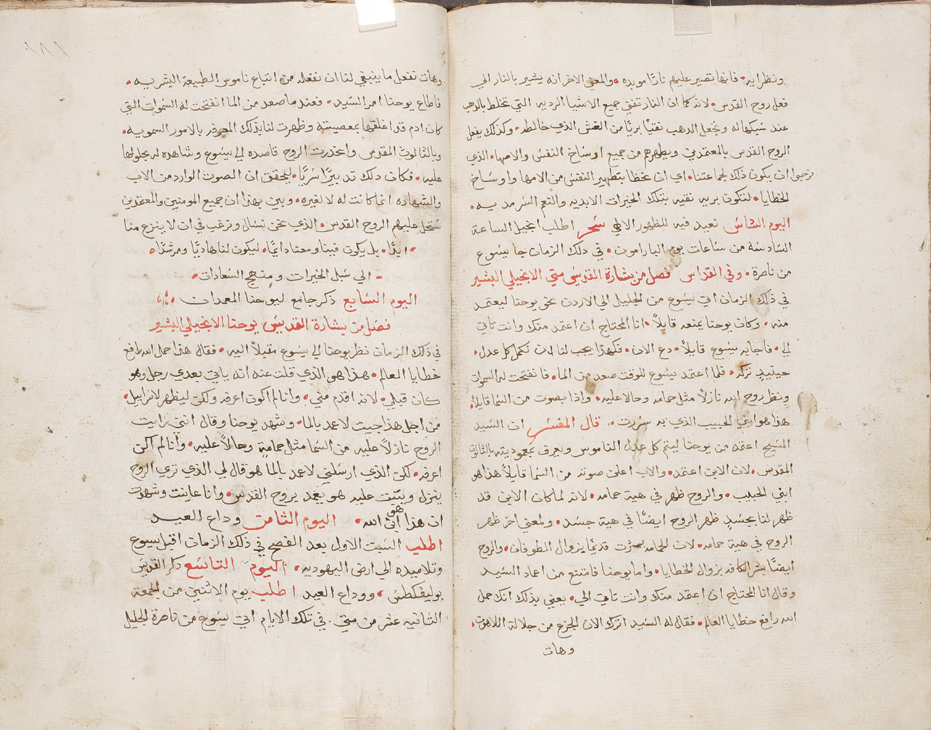 ونظرايه • فانها تصير عليهم نارًا موبده • والمعنى الاخر انه يشير بالنار الى
فعل روح القدس • لانه كما ان النار تفني جميع الاشيا الرديه التي تختلط بالذهب
عند سبكها له وتجعل الذهب نقيًا بريًا من الغش الذي خالطه • وكذلك يفعل
الروح القدس بالمعتمدين ويطهرهم من جميع اوساخ النفس والامها • الذي
نرجوا ان يكون ذلك لجماعتنا • اي ان نحظا بتطهير النفس من الامها واوساخ
الخطايا • لنكون بريه نقيه بتلك الخيرات الابديه والنعم السرمديه •
اليوم السادس نعيد فيه للظهور الالهي سحر اطلب انجيل الساعة
السادسة من ساعات يوم البارامون • في ذلك الزمان جا يسوع
من ناصرة • وفي القداس فصل من بشارة القديس متي الانجيلي البشير
في ذلك الزمان اتي يسوع من الجليل الى الاردن نحو يوحنا ليعتمد
منه • وكان يوحنا يمنعه قايلاً • انا المحتاج ان اعتمد منك وانت تاتي
الي • فاجابه يسوع قايلاً • دع الان • فهكذا يجب لنا ان نكمل كل عدل •
حينيذٍ تركه • فلما اعتمد يسوع للوقت صعد من الما • فانفتحت له السموات
ونظر روح الله نازلاً مثل حمامه وحالا عليه • واذا بصوت من السما قايلاً
هذا هو ابني الحبيب الذي به سررت • قال المفسر ان السيد
المسيح اعتمد من يوحنا ليتم كل عدل الناموس ونعرف معموديته بالثالوث
المقدس • لان الابن اعتمد • والاب اعلن صوته من السما قايلاً هذا هو
ابني الحبيب • والروح ظهر في هية حمامه • لانه لما كان الابن قد
ظهر لنا بجسد ظهر الروح ايضًا في هية جسد • ولمعنى اخر ظهر
الروح في هية حمامه • لان الحمامه بشرت قديمًا بزوال الطوفان • والروح
ايضًا بشر الكافة بزوال الخطايا • واما يوحنا فامتنع من اعماد السيد
وقال انا المحتاج ان اعتمد منك وانت تاتي الي • يعني بذلك انك حمل
الله رافع خطايا العالم • فقال له السيد اترك الان الجزع من جلالة اللاهوت •
وهات
وهات نفعل ما ينبغي لنا ان نفعله من اتباع ناموس الطبيعة البشريه •
فاطاع يوحنا امر السيد • فعندما صعد من الما انفتحت له السموات التي
كان ادم قد اغلقها بمعصيته وظهرت لنا بذلك المعرفه بالامور السمويه •
وبالثالوث المقدس وانحدرت الروح قاصده الى يسوع وشاهده له بحلولها
عليه • فكان ذلك تدبيرًا سريًا • ليحقق ان الصوت الوارد من الاب
والشهاده انما كانت له لا لغيره • وبين بهذا ان جميع المومنين والمعتمدين
ستحل عليهم الروح القدس • الذي نحن نسال ونرغب في ان لا ينزع منا
• ابدًا • بل يكون فينا ومعنا دايمًا • ليكون لنا هاديًا ومرشدًا •
الي سبل الخيرات ومنهج السعادات •
اليوم السابع ذكر جامع ليوحنا المعمدان
فصل من بشارة القديس يوحنا الانجيلي البشير
في ذلك الزمان نظر يوحنا الى يسوع مقبلاً اليه • فقال هذا حمل الله رافع
خطايا العالم • هذا هو الذي قلت عنه انه ياتي بعدي رجل وهو
كان قبلي • لانه اقدم مني • وانا لم اكون اعرفه ولكن ليظهر لاسراييل •
من اجل هذا جيت لاعمد بالما • وشهد يوحنا وقال انني رايت
الروح نازلاً عليه من السما مثل حمامةٍ وحالاً عليه • وانا لم اكن
اعرفه • لكن الذي ارسلني لاعمد بالما هو قال لي الذي تري الروح
ينزل ويثبت عليه هو يعمد بروح القدس • وانا عاينت وشهدت
ان هذا هو ابن الله • اليوم الثامن وداع العيد
اطلب السبت الاول بعد الفصح في ذلك الزمان اقبل يسوع
وتلاميذه الى ارض اليهوديه • اليوم التاسع ذكر القديس
بوليفكطس • ووداع العيد اطلب يوم الاثنين من الجمعة
الثانيه عشر من متي • في تلك الايام اتي يسوع من ناصرة الجليل